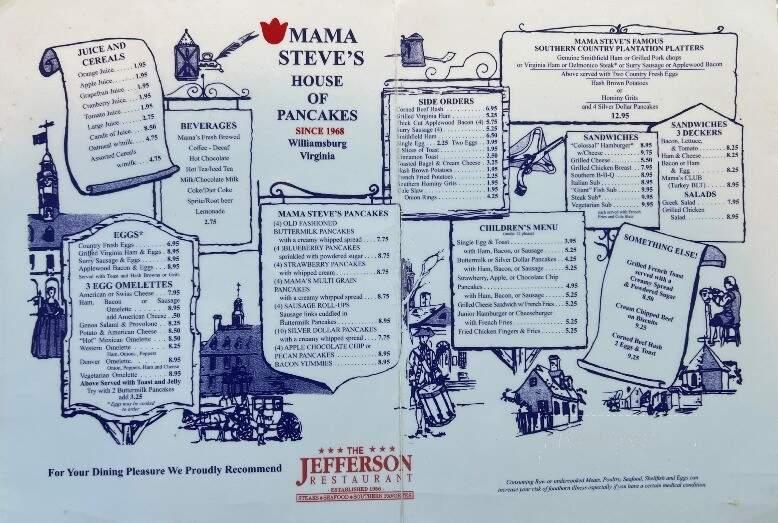 JUICE AND
CEREALS
Orange Juice 1.95
Apple Juice 1.95
Grapefruit Juice 1.95
Cranberry Juice 1.95
Tomato Juice 1.95
Large Juice 2.75
Oatmeal w/milk 4.75
Assorted Cereals
w/milk 4.75
BEVERAGES
Mama's Fresh Brewed
Coffee - Decaf
Hot Chocolate
Hot Tea/Iced Tea
Milk/Chocolate Milk
Coke/Diet Coke
Sprite/Root beer
Lemonade
2.75
MAMA
STEVE'S
HOUSE
OF
PANCAKES
SINCE 1968
Williamsburg
Virginia
EGGS*
Country Fresh Eggs 6.95
Grilled Virginia Ham & Eggs 8.95
Surry Sausage & Eggs 8.95
Applewood Bacon & Eggs 8.95
Served with Toast and Hash Browns or Grits
3 EGG OMELETTES
American or Swiss Cheese 7.95
Ham, Bacon, or Sausage
Omelette 8.95
add American Cheese .50
Genoa Salami & Provolone 8.25
Potato & American Cheese 8.50
"Hot" Mexican Omelette 8.50
Western Omelette 8.25
Ham, Onions, Peppers
Denver Omelette 8.95
Onion, Peppers, Ham and Cheese
Vegetarian Omelette 8.95
Above Served with Toast and Jelly
Try with 2 Buttermilk Pancakes
add 3.25
*Eggs may be cooked
to order
MAMA STEVE'S PANCAKES
(4) OLD FASHIONED
BUTTERMILK PANCAKES
with a creamy whipped spread 7.75
(4) BLUEBERRY PANCAKES
sprinkled with powdered sugar 8.75
(4) STRAWBERRY PANCAKES
with whipped cream 8.75
(4) MAMA'S MULTI GRAIN
PANCAKES
with a creamy whipped spread 8.75
(4) SAUSAGE ROLL-UPS
Sausage links cuddled in
Buttermilk Pancakes 8.95
(10) SILVER DOLLAR PANCAKES
with a creamy whipped spread 7.75
(4) APPLE CHOCOLATE CHIP or
PECAN PANCAKES 8.95
BACON YUMMIES 8.95
SIDE ORDERS
Corned Beef Hash 6.95
Grilled Virginia Ham 5.25
Thick Cut Applewood Bacon (4) 5.75
Surry Sausage (4) 5.25
Smithfield Ham 6.50
Single Egg 2.25 Two Eggs 3.95
2 Slices of Toast 1.95
Cinnamon Toast 2.50
Toasted Bagel & Cream Cheese 3.25
Hash Brown Potatoes 1.95
French Fried Potatoes 2.25
Southern Hominy Grits 1.95
Cole Slaw 1.95
Onion Rings 4.25
MAMA STEVE'S FAMOUS
SOUTHERN COUNTRY PLANTATION PLATTERS
Genuine Smithfield Ham or Grilled Pork chops
or Virginia Ham or Delmonico Steak* or Surry Sausage or Applewood Bacon
Above served with Two Country Fresh Eggs
Hash Brown Potatoes
or
Hominy Grits
and 4 Silver Dollar Pancakes
12.95
SANDWICHES
"Colossal" Hamburger* 8.95
w/Cheese 9.75
Grilled Cheese 5.50
Grilled Chicken Breast 7.95
Southern B-B-Q 8.95
Italian Sub 8.95
"Giant" Fish Sub 9.95
Steak Sub* 9.95
Vegetarian Sub 9.95
each served with French
Fries and Cole Slaw
SANDWICHES
3 DECKERS
Bacon, Lettuce,
& Tomato 8.25
Ham & Cheese 8.25
Bacon or Ham
& Egg 8.25
Mama's CLUB
(Turkey BLT) 8.95
SALADS
Greek Salad 7.95
Grilled Chicken
Salad 8.95
CHILDREN'S MENU
Single Egg & Toast 3.95
with Ham, Bacon, or Sausage 5.25
Buttermilk or Silver Dollar Pancakes 4.25
with Ham, Bacon, or Sausage 5.25
Strawberry, Apple, or Chocolate Chip
Pancakes 4.95
with Ham, Bacon, or Sausage 5.25
Grilled Cheese Sandwich w/French Fries 5.25
Junior Hamburger or Cheeseburger
with French Fries 5.25
Fried Chicken Fingers & Fries 5.25
SOMETHING ELSE!
Grilled French Toast
served with a
Creamy Spread
& Powdered Sugar
8.50
Cream Chipped Beef
on Biscuits
9.25
Corned Beef Hash
2 Eggs & Toast
9.25
For Your Dining Pleasure We Proudly Recommend
THE
JEFFERSON
RESTAURANT
- ESTABLISHED 1956 -
STEAKS SEAFOOD SOUTHERN FAVORITES
Consuming Raw or undercooked Meats, Poultry, Seafood, Shellfish and Eggs can
increase your risk of foodborn illness especially if you have a certain medical condition.